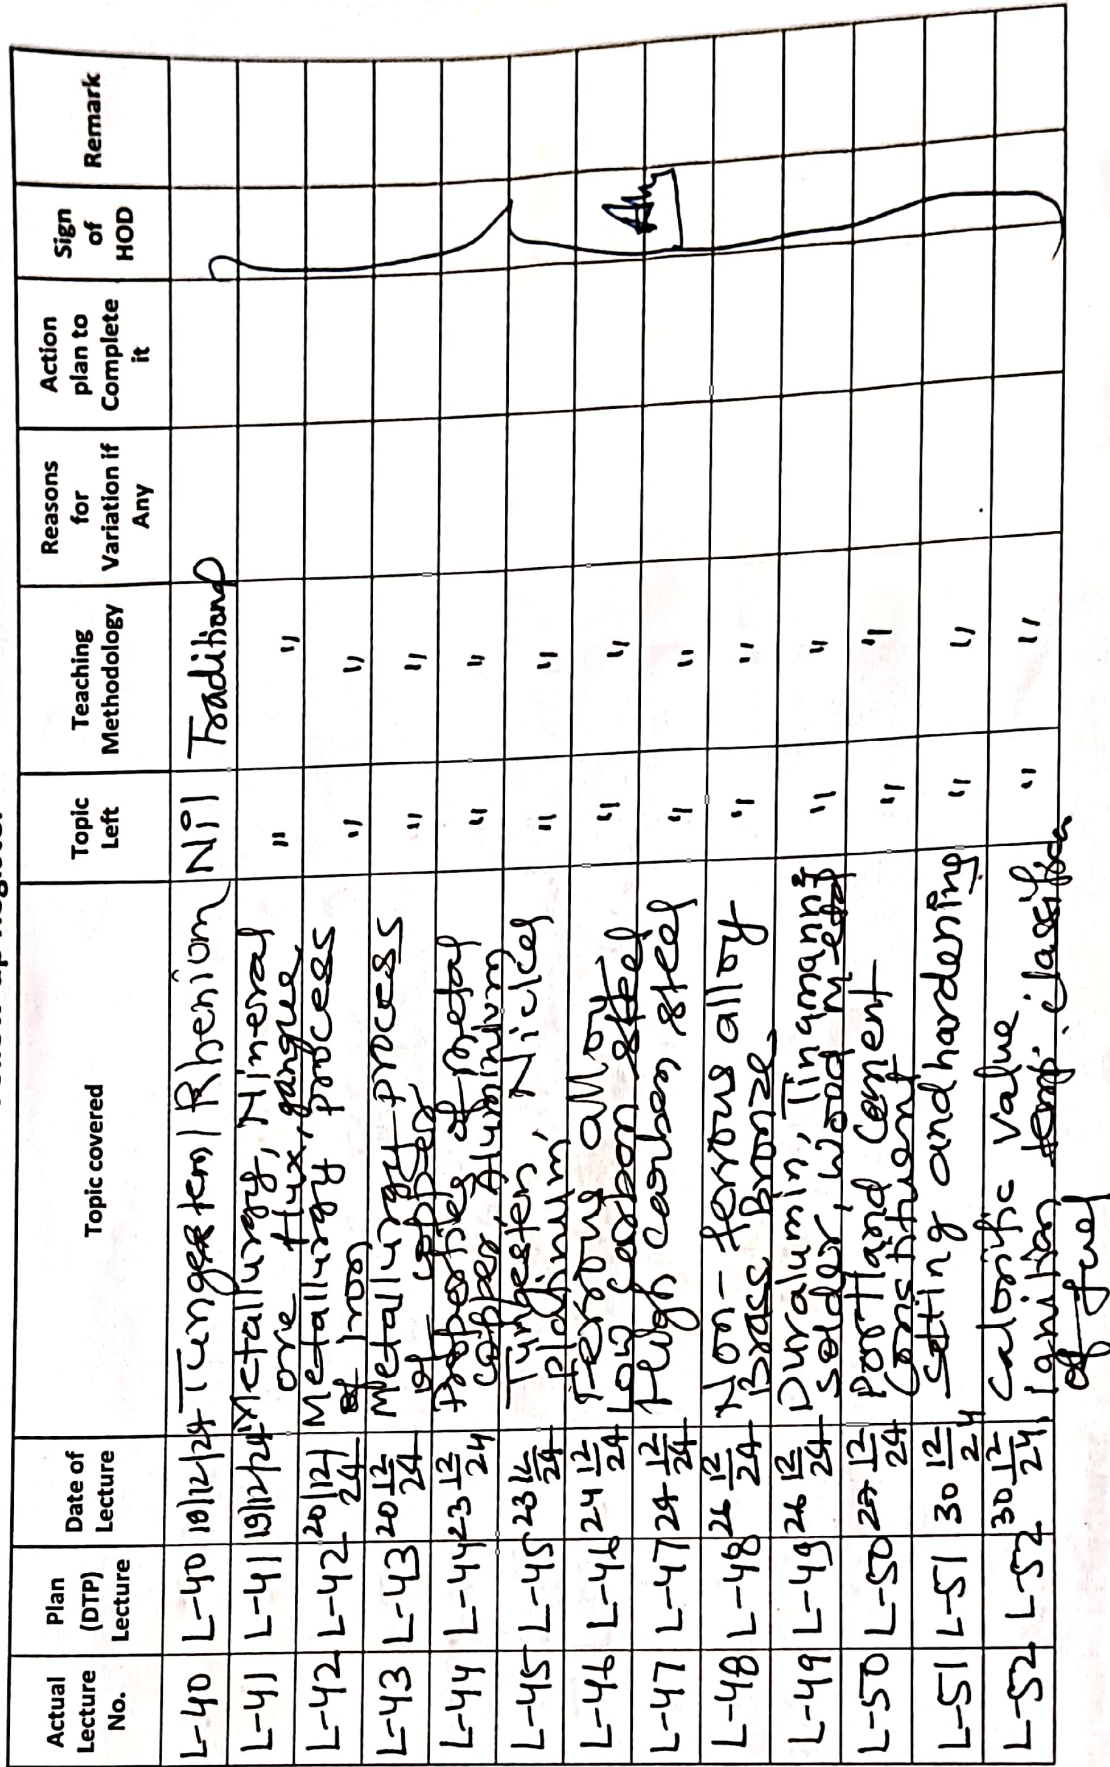 Actual Lecture No. | Plan (DTP) Lecture | Date of Lecture | Topic covered | Topic Left | Teaching Methodology | Reasons for Variation if Any | Action plan to Complete it | Sign of HOD | Remark
L-40 | L-40 | 19/12/24 | Tungestem / Rhenium | Nil | Traditional
L-41 | L-41 | 19/12/24 | Metallurgy, Mineral ore flux, gangue | " | "
L-42 | L-42 | 20/12/24 | Metallurgy process of Iron | " | "
L-43 | L-43 | 20 12/24 | Metallurgy process of copper | " | "
L-44 | L-44 | 23 12/24 | Properties of metal copper, Aluminium | " | "
L-45 | L-45 | 23 12/24 | Tungesten, Nickel Platinum, | " | "
L-46 | L-46 | 24 12/24 | Ferrous alloy Low carbon steel | " | "
L-47 | L-47 | 24 12/24 | High carbon steel | " | "
L-48 | L-48 | 26 12/24 | Non-ferrous alloy Brass Bronze | " | "
L-49 | L-49 | 26 12/24 | Duralumin, Tinqmanng solder, Wood Metal | " | "
L-50 | L-50 | 27 12/24 | Portland Cement Constituent | " | "
L-51 | L-51 | 30 12/24 | Setting and hardening | " | "
L-52 | L-52 | 30 12/24 | Calorific value Ignition temp. classification of fuel | " | "